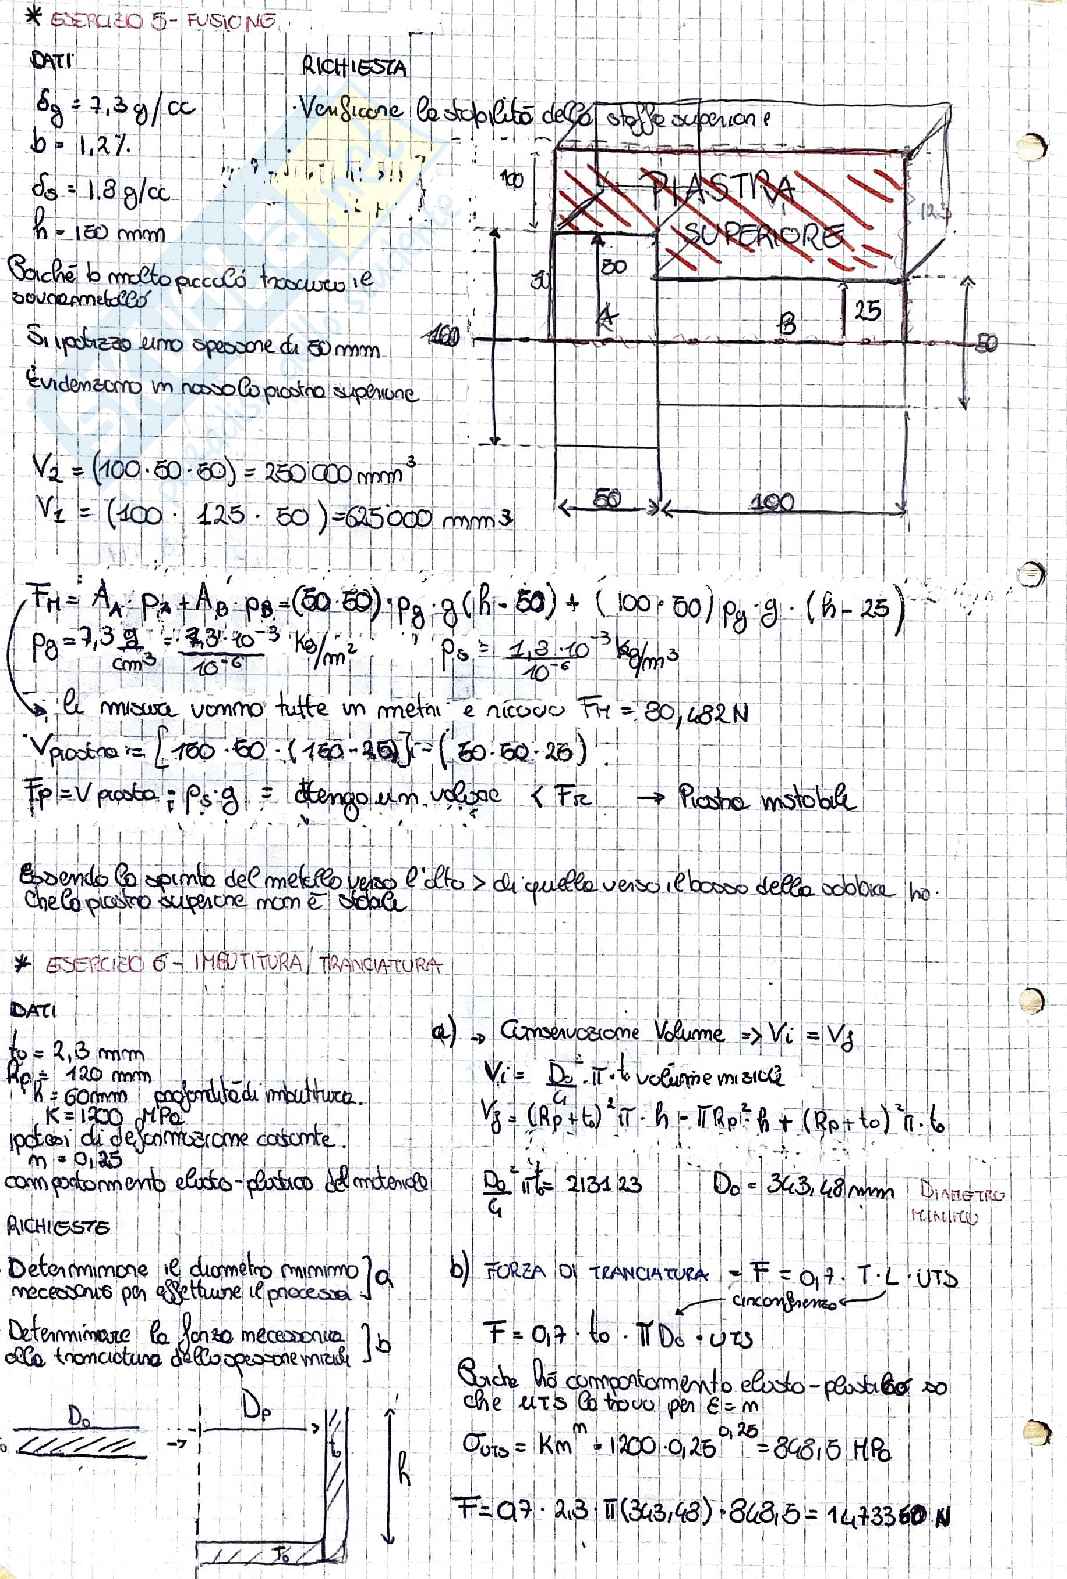 * ESERCIZIO 5 - FUSIONE
DATI
RICHIESTA
δg = 7,3 g/cc
· Verificare la stabilità della staffa superiore
b = 1,2%
δs = 1.8 g/cc
h = 150 mm
Poiché b molto piccolo trascuro il
sovrametallo
Si ipotizza uno spessore di 50 mm
Evidenziamo in rosso la piastra superiore
100
PIASTRA
SUPERIORE
123
50
50
A
B
25
100
50
50
100
V2 = (100·50·50) = 250'000 mm³
V1 = (100 · 125 · 50) = 625'000 mm³
FM = AA · PA + AB · PB = (50·50)·ρg·g(h-50) + (100·50)ρg·g·(h-25)
ρg = 7,3 g/cm³ = 7,3·10⁻³/10⁻⁶ Kg/m² ρs = 1,3·10⁻³/10⁻⁶ kg/m³
le misure vanno tutte in metri e ricavo FM = 80,482 N
Vpiastra = [150·50·(150-25)] - (50·50·25)
FP = Vpiastra · ρs·g = ottengo un valore < FM → Piastra instabile
Essendo la spinta del metallo verso l'alto > di quella verso il basso della sabbia ho
che la piastra superiore non è stabile
* ESERCIZIO 6 - IMBUTITURA / TRANCIATURA
DATI
t0 = 2,3 mm
Rp = 120 mm
h = 60mm profondità di imbutitura.
K = 1200 MPa
ipotesi di deformazione costante.
m = 0,25
comportamento elasto-plastico del materiale
RICHIESTE
Determinare il diametro minimo
necessario per effettuare il processo ] a
Determinare la forza necessaria
alla tranciatura dello spessore iniziale ] b
a) → Conservazione Volume => Vi = Vf
Vi = D0²/4 · π · t0 volume iniziale
Vf = (Rp+t0)²π · h - πRp²·h + (Rp+t0)²π·t0
D0²/4 πt0 = 213123 D0 = 343,48 mm DIAMETRO
MINIMO
b) FORZA DI TRANCIATURA - F = 0,7 · T · L · UTS
circonferenza
F = 0,7 · t0 · πD0 · UTS
Poiché ho comportamento elasto-plastico so
che UTS la trovo per ε = m
σUTS = Km^m = 1200·0,25^0,25 = 848,5 MPa
F = 0,7 · 2,3 · π(343,48) · 848,5 = 1473360 N
D0
Dp
t
h
T0